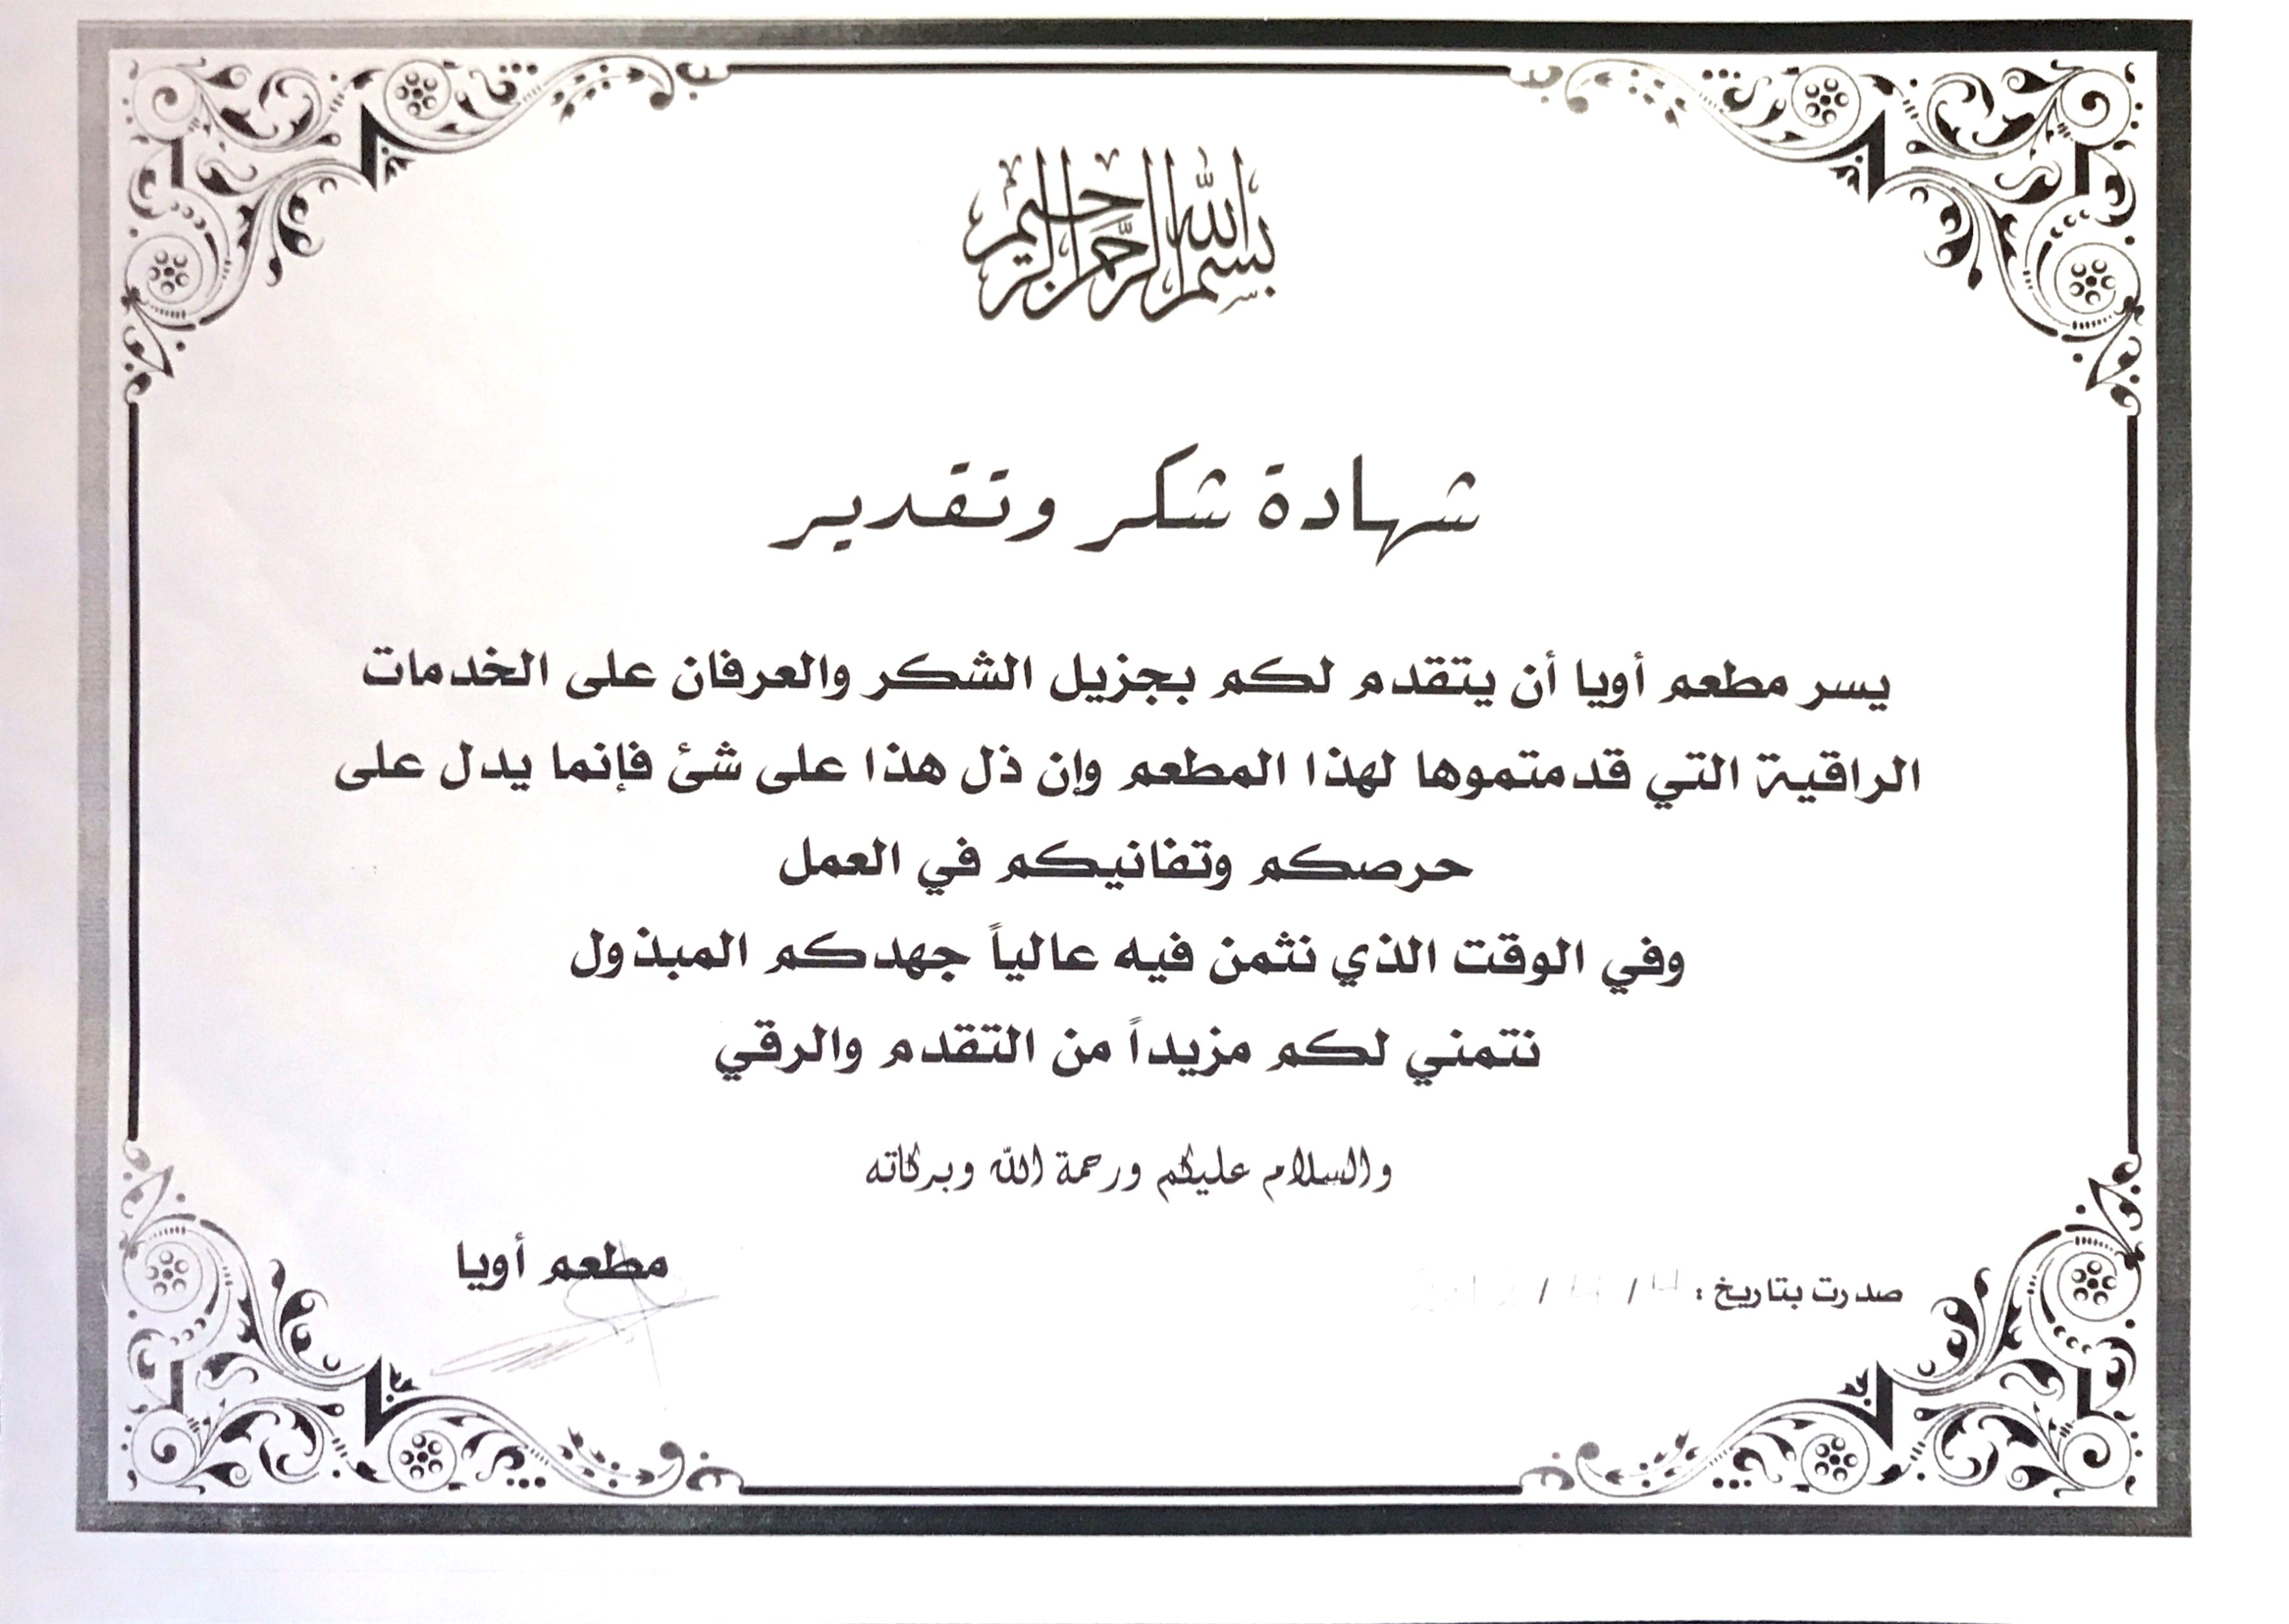 بسم الله الرحمن الرحيم
شهادة شكر وتقدير
يسر مطعم أويا أن يتقدم لكم بجزيل الشكر والعرفان على الخدمات
الراقية التي قدمتموها لهذا المطعم وإن ذل هذا على شئ فإنما يدل على
حرصكم وتفانيكم في العمل
وفي الوقت الذي نثمن فيه عالياً جهدكم المبذول
نتمني لكم مزيداً من التقدم والرقي
والسلام عليكم ورحمة الله وبركاته
مطعم أويا
صدرت بتاريخ : / /